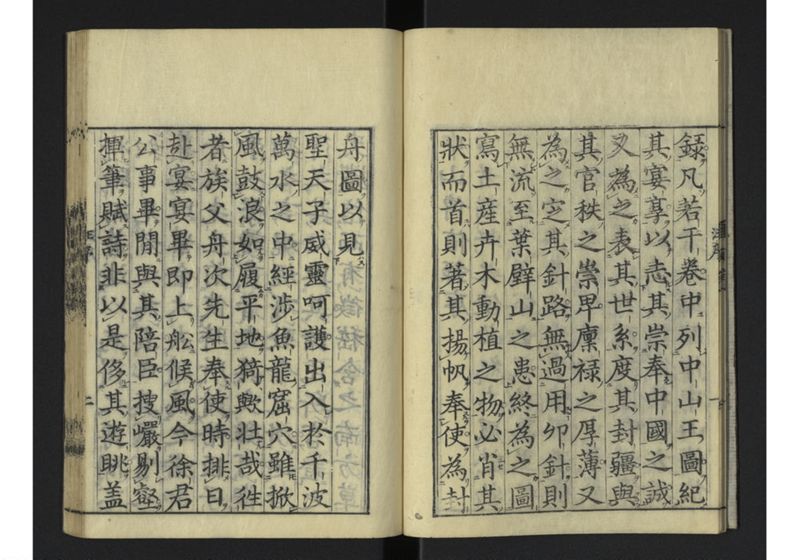 録凡若干巻中列中山王圖紀
其宴享以志其崇奉中國之誠
又為之表其世系度其封疆與
其官秩之崇卑廩禄之厚薄又
為之定其針路無過用卯針則
無流至葉壁山之患終為之圖
寫土産卉木動植之物必肖其
狀而首則著其揚帆奉使為封
舟圖以見
聖天子威靈呵護出入於千波
萬水之中經涉魚龍窟穴雖掀
風鼓浪如履平地猗歟壯哉徃
者族父舟次先生奉使時排日
赴宴宴畢即上舩候風今徐君
公事畢閒與其陪臣搜巖剔壑
揮筆賦詩非以是侈其遊眺盖